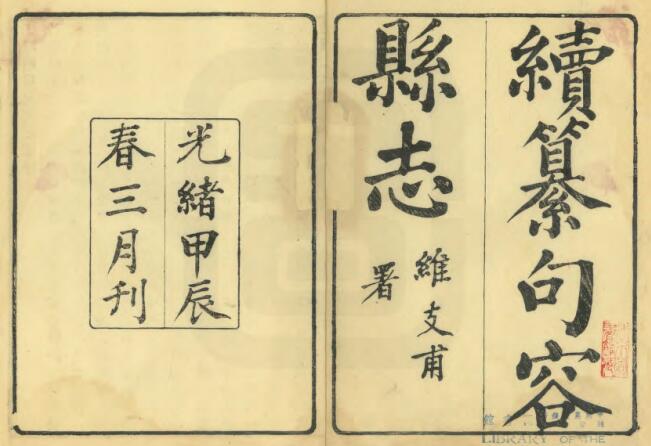 續纂句容
縣志
維支甫
署
光緒甲辰
春三月刊
LIBRARY OF THE